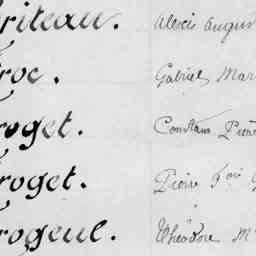 riteau. Alexis Augus
roc. Gabriel Mar
roget. Constans Pier
roget. Pierre fois
rogeul. Théodore M